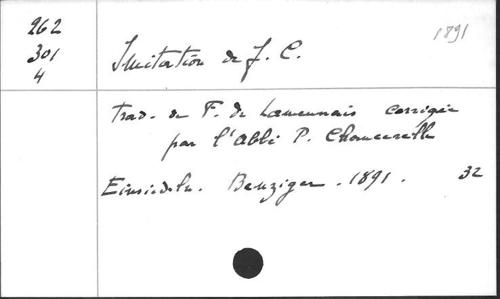 262
301
4
1891
Imitation de J. C.
Trad. de F. de Lamennais corrigée
par l'abbé P.
Einsiedeln. Benziger. 1891. 32